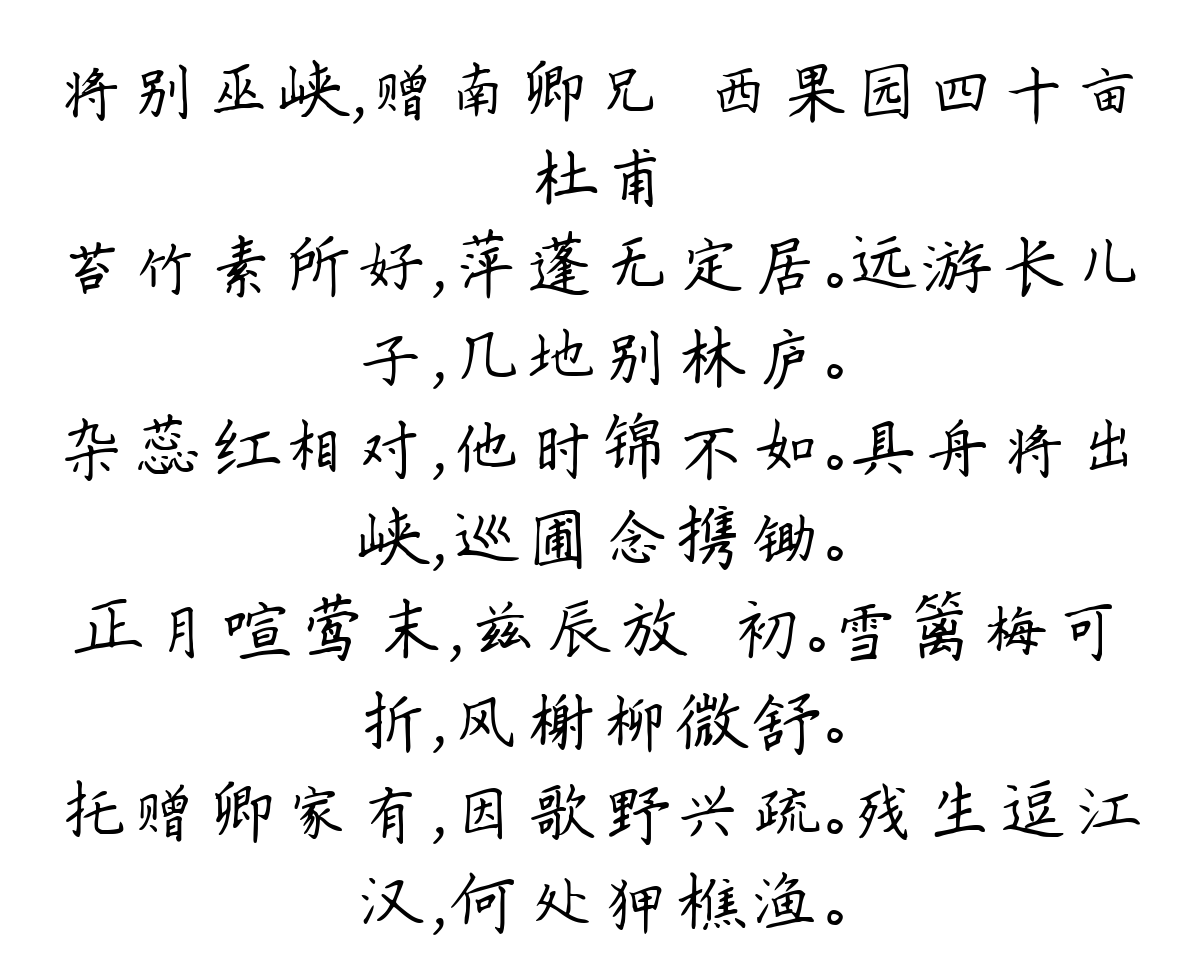 将别巫峡,赠南卿兄 西果园四十亩
杜甫
苔竹素所好,萍蓬无定居。远游长儿
子,几地别林庐。
杂蕊红相对,他时锦不如。具舟将出
峡,巡圃念携锄。
正月喧莺末,兹辰放 初。雪篱梅可
折,风榭柳微舒。
托赠卿家有,因歌野兴疏。残生逗江
汉,何处狎樵渔。